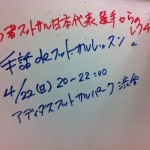 ろう者フットサル日本代表選手からの
レクチ
手話deフットサルレッスン
4/22(日) 20-22:00
アディダスフットサルパーク 渋谷